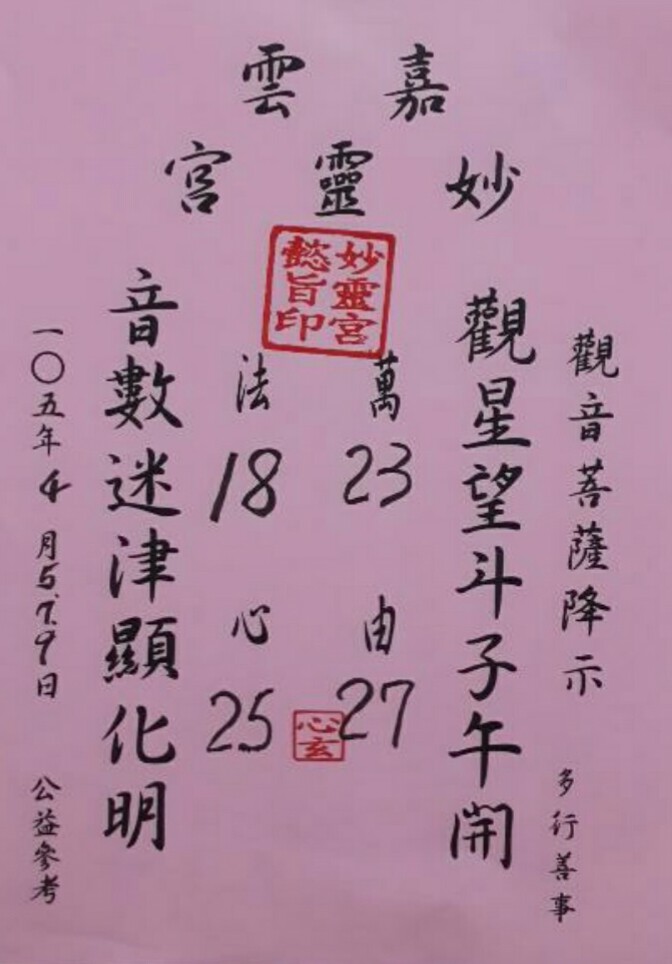 嘉雲
妙靈宮
妙靈宮
懿旨印
觀音菩薩降示
多行善事
觀星望斗子午開
萬 23
由 27
法 18
心 25
心玄
音數迷津顯化明
一〇五年4月5.7.9日
公益參考